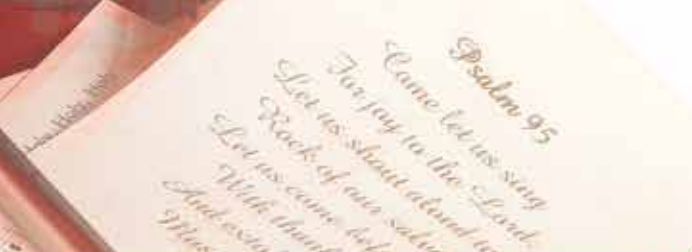 Psalm 95
Come let us sing
For joy to the Lord
Let us shout aloud to
Rock of our
Let us come
With
And